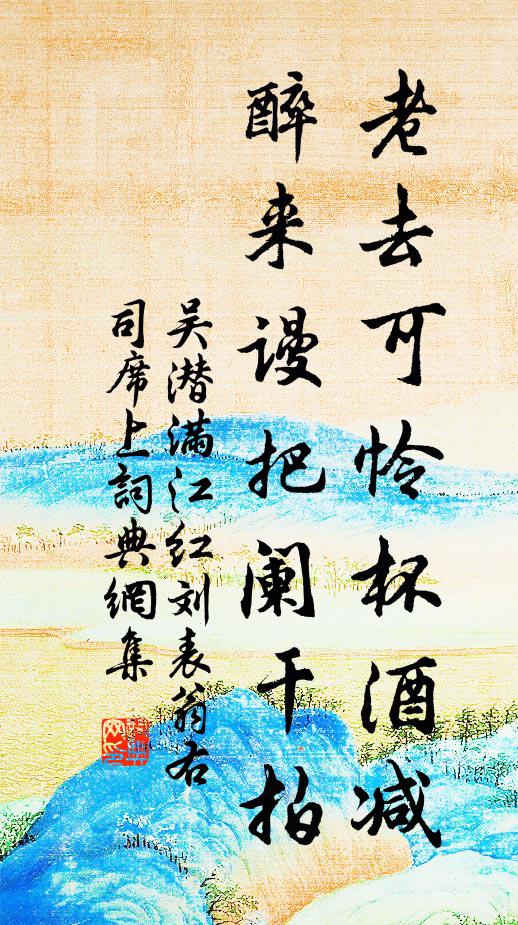 老去可怜杯酒减
醉来谩把阑干拍
吴潜满江红刘表翁右
司席上詞典網集